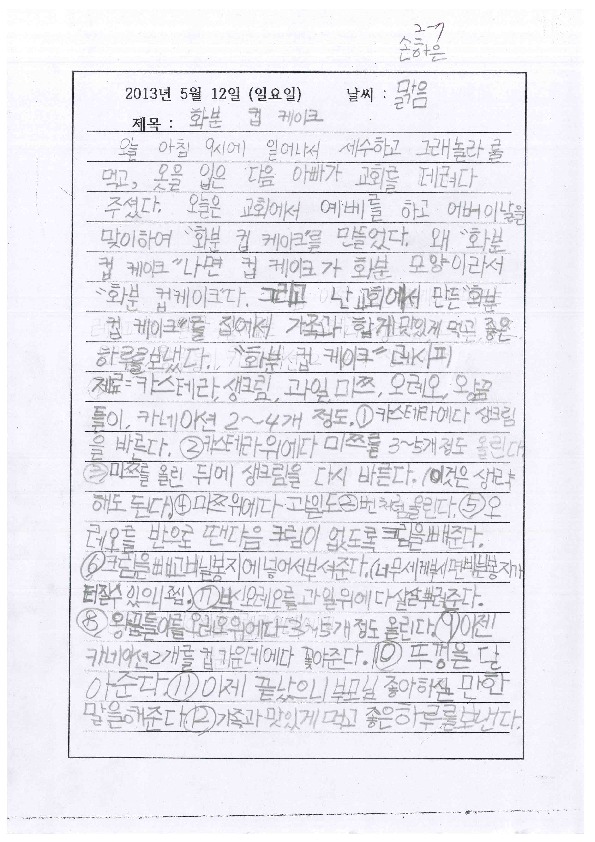 2-7
손하은
2013년 5월 12일 (일요일) 날씨 : 맑음
제목 : 화분 컵 케이크
오늘 아침 9시에 일어나서 세수하고 그래놀라를
먹고, 옷을 입은 다음 아빠가 교회를 데려다
주셨다. 오늘은 교회에서 예배를 하고 어버이날을
맞이하여 "화분 컵 케이크"를 만들었다. 왜 "화분
컵 케이크"냐면 컵 케이크가 화분 모양이라서
"화분 컵케이크"다. 그리고 난 교회에서 만든 "화분
컵 케이크"를 집에서 가족과 함께 맛있게 먹고 좋은
하루를 보냈다. "화분 컵 케이크" 레시피
재료=카스테라, 생크림, 과일 미쯔, 오레오, 왕꿈
틀이, 카네이션 2~4개 정도. ① 카스테라에다 생크림
을 바른다. ② 카스테라 위에다 미쯔를 3~5개 정도 올린다.
③ 미쯔를 올린 뒤에 생크림을 다시 바른다. (이것은 생략
해도 된다) ④ 미쯔 위에다 과일도 ②번처럼 올린다. ⑤ 오
레오를 반으로 뗀다음 크림이 없도록 크림을 빼준다.
⑥ 크림을 빼고 비닐봉지에 넣어서 부셔준다. (너무 세게 부시면 비닐봉지가
터질수 있으니 조심). ⑦ 오레오를 과일 위에다 살살 뿌려준다.
⑧ 왕꿈틀이를 오레오 위에다 3~5개 정도 올린다. ⑨ 이젠
카네이션 2개를 컵 가운데에다 꽂아준다. ⑩ 뚜껑을 닫
아준다. ⑪ 이제 끝났으니 부모님 좋아하실 만한
말을 해준다. ⑫ 가족과 맛있게 먹고 좋은 하루를 보낸다.